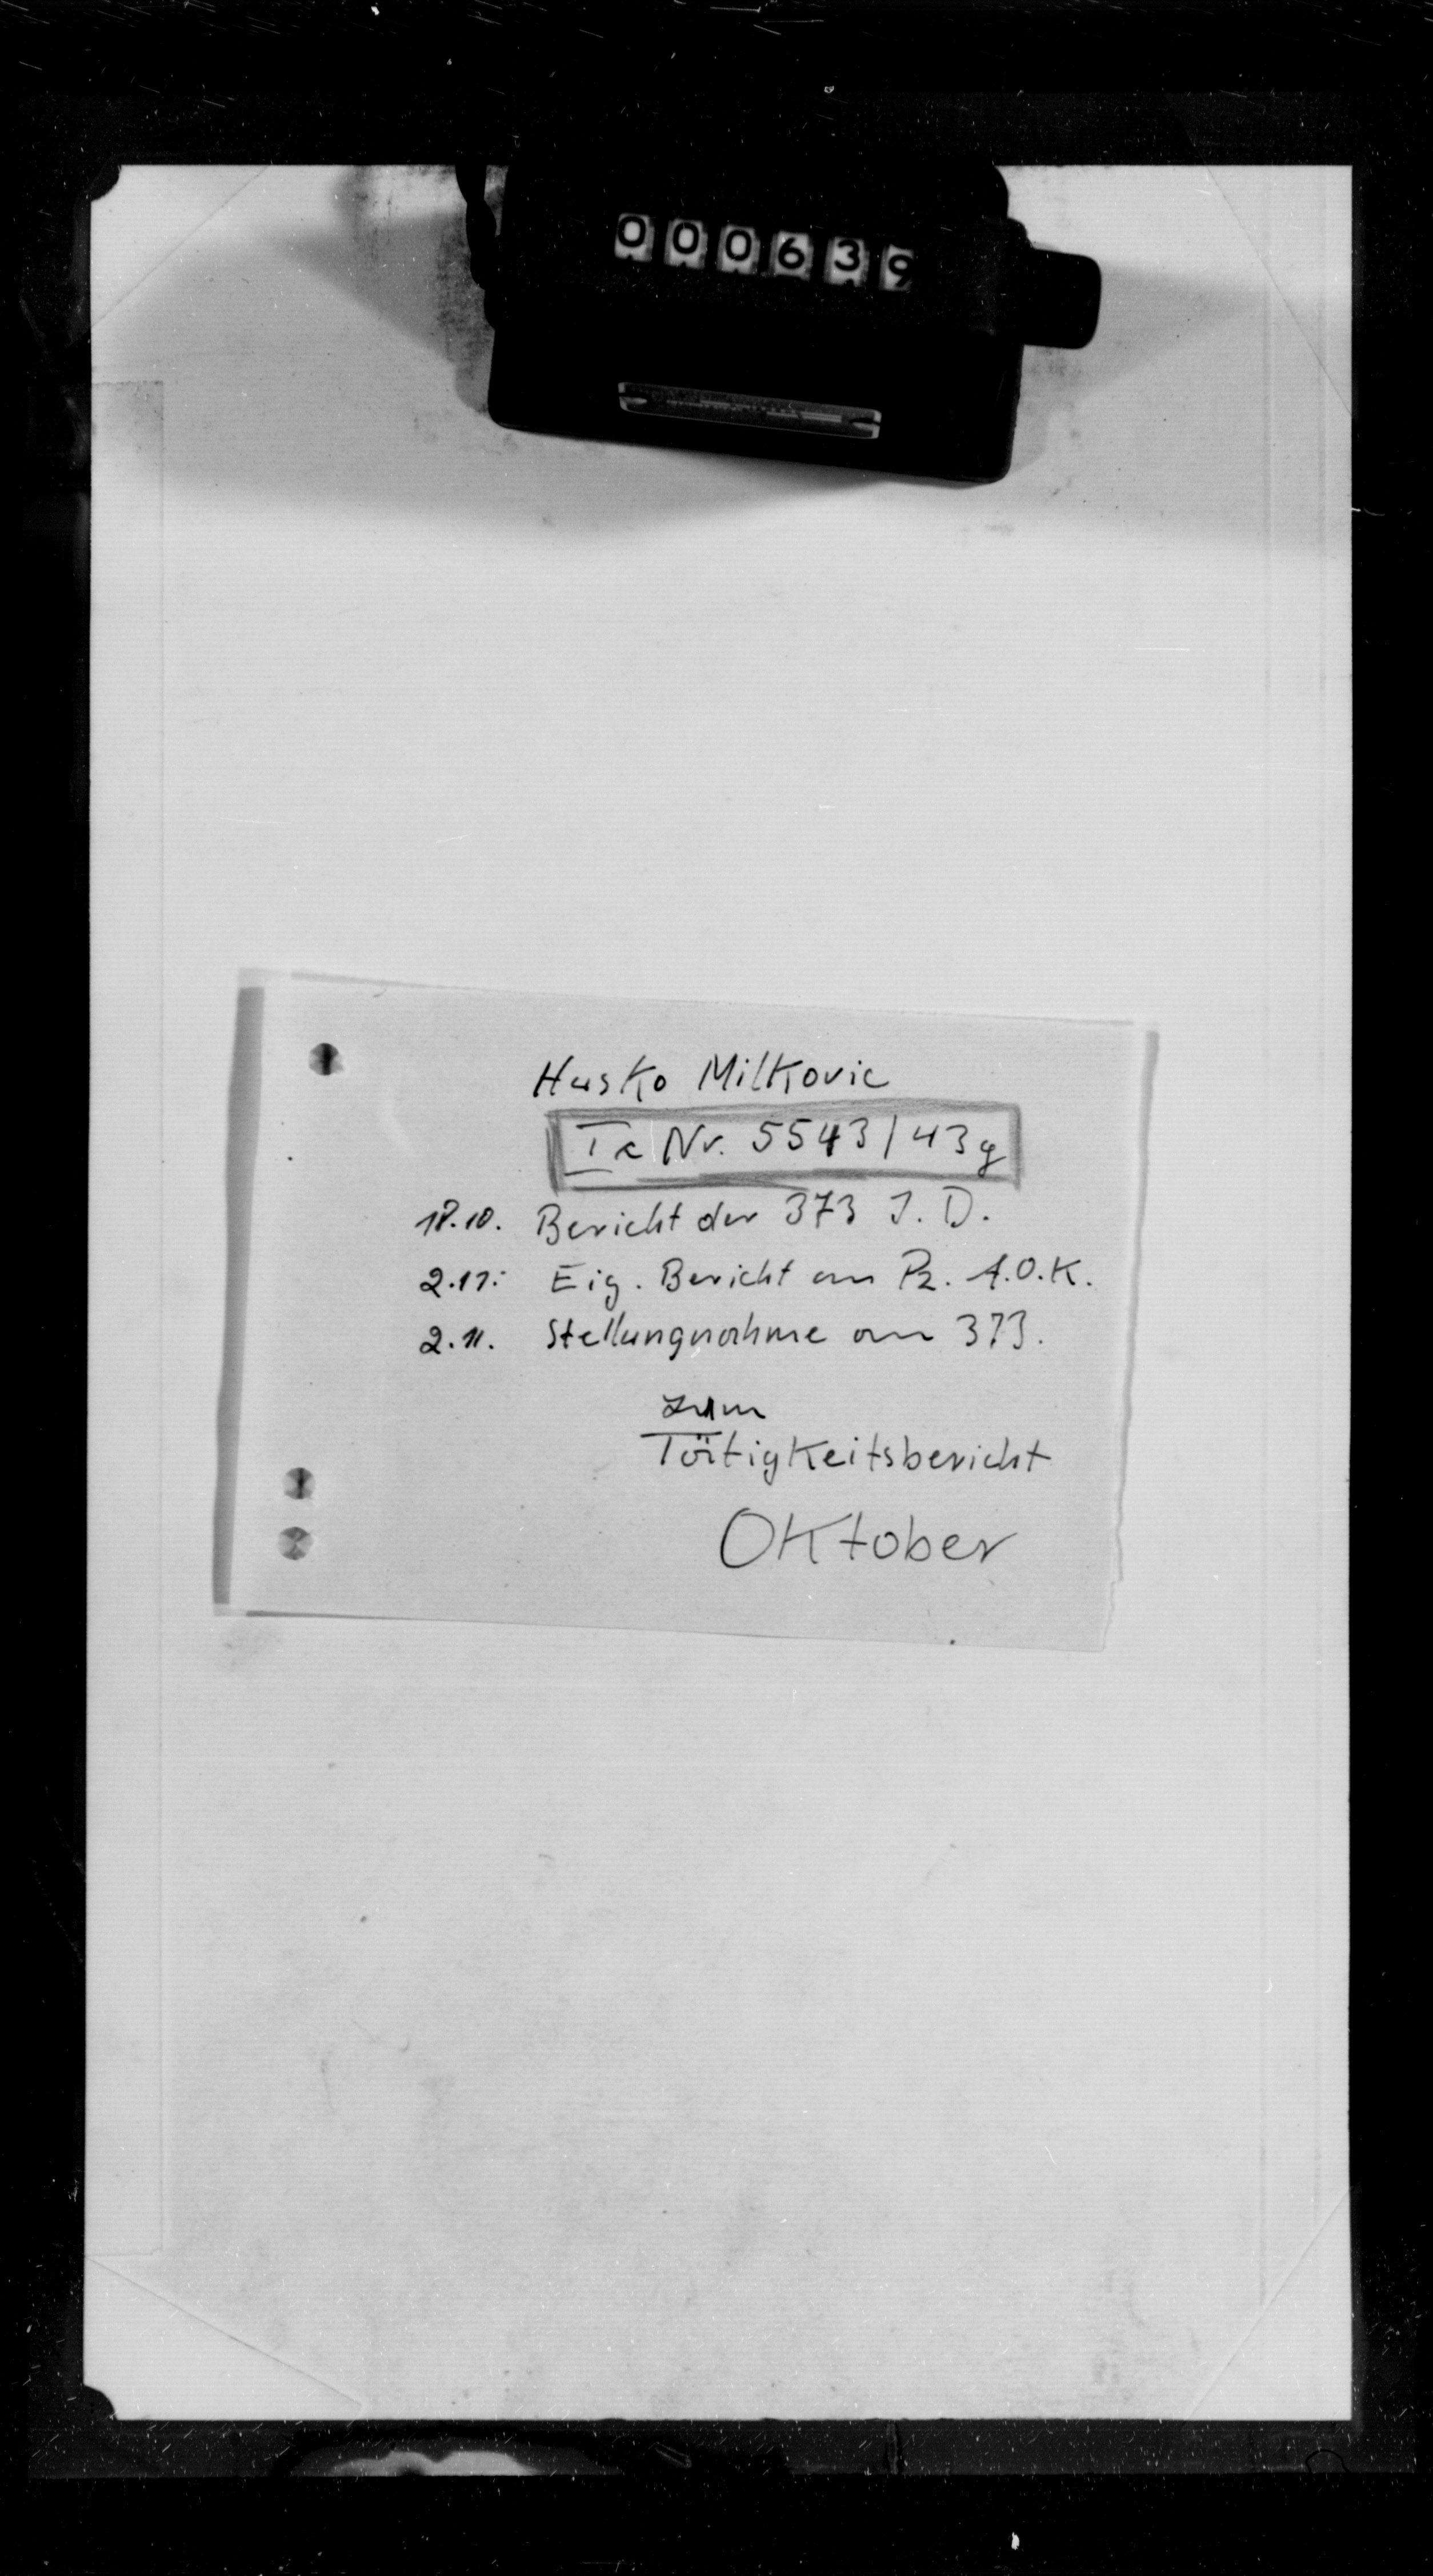 000639
Husko Milkovic
Ic Nr. 5543/43g
18.10. Bericht der 373 I.D.
2.11. Eig. Bericht an Pz. A.O.K.
2.11. Stellungnahme an 373.
zum
Tätigkeitsbericht
Oktober